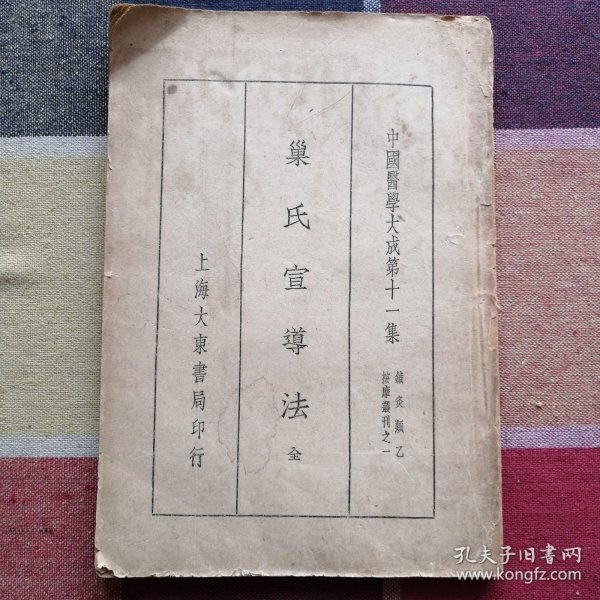 中國醫學大成第十一集
鍼灸類乙
按摩叢刊之一
巢氏宣導法 全
上海大東書局印行
孔夫子旧書网
www.kongfz.com